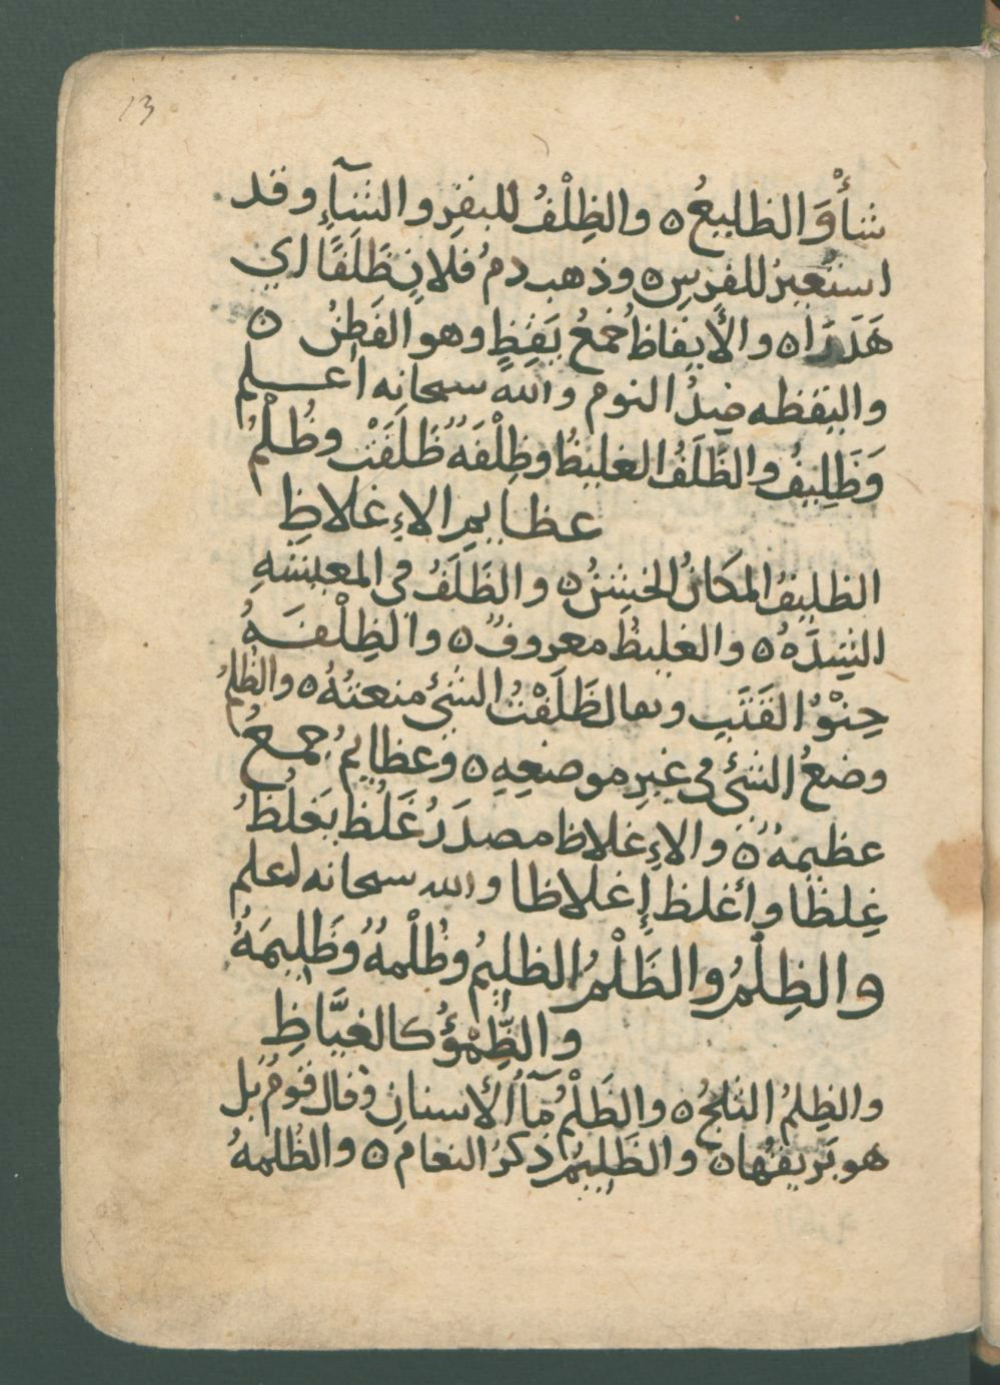 13
شأْوَ الظليعُ ٥ والظِلْفُ للبقرِ والشآءِ وقد
استُعِيرُ للفرسِ ٥ وذهب دمُ فلانٍ ظَلَفًا اي
هَدَرًا ٥ والأيقاظُ جمعُ يَقِظٍ وهو الفَطِنُ ٥
واليقظه ضِدُّ النوم والله سبحانه اعلم
وَظَلِيفُ والظَّلَفُ الغليظُ وظِلْفَةٌ ظَلَفَتْ وظُلْمُ
عظايمِ الاِغلاظِ
الظليفُ المكَانُ الخشِنُ ٥ والظَلَفُ في المعيشهِ
الشِدَّهُ ٥ والغليظُ معروفٌ ٥ والظِلْفَهُ
حِنْوُ القَتَبِ ويقال ظَلَفْتُ الشئَ منعتهُ ٥ والظُلمُ
وضعُ الشئَ في غيرِ موضعِهِ ٥ وعظايمُ جمعُ
عظيمهٌ ٥ والاِغلاظ مصدَرُ غَلُظَ يَغلُظُ
غِلظًا وأغلظ إِغلاظا والله سبحانه اعلم
والظِلْمُ والظَلْمُ الظليمُ وظُلْمهٌ وظَلِيمَهٌ
والظِّمْؤُ كالغيَّاظِ
والظِلمُ الثلجُ ٥ والظَلْمُ مآءُ الأسنانِ وقال قومٌ بل
هو بَريقُها ٥ والظَلِيمُ ذكرُ النعامِ ٥ والظُلمهُ